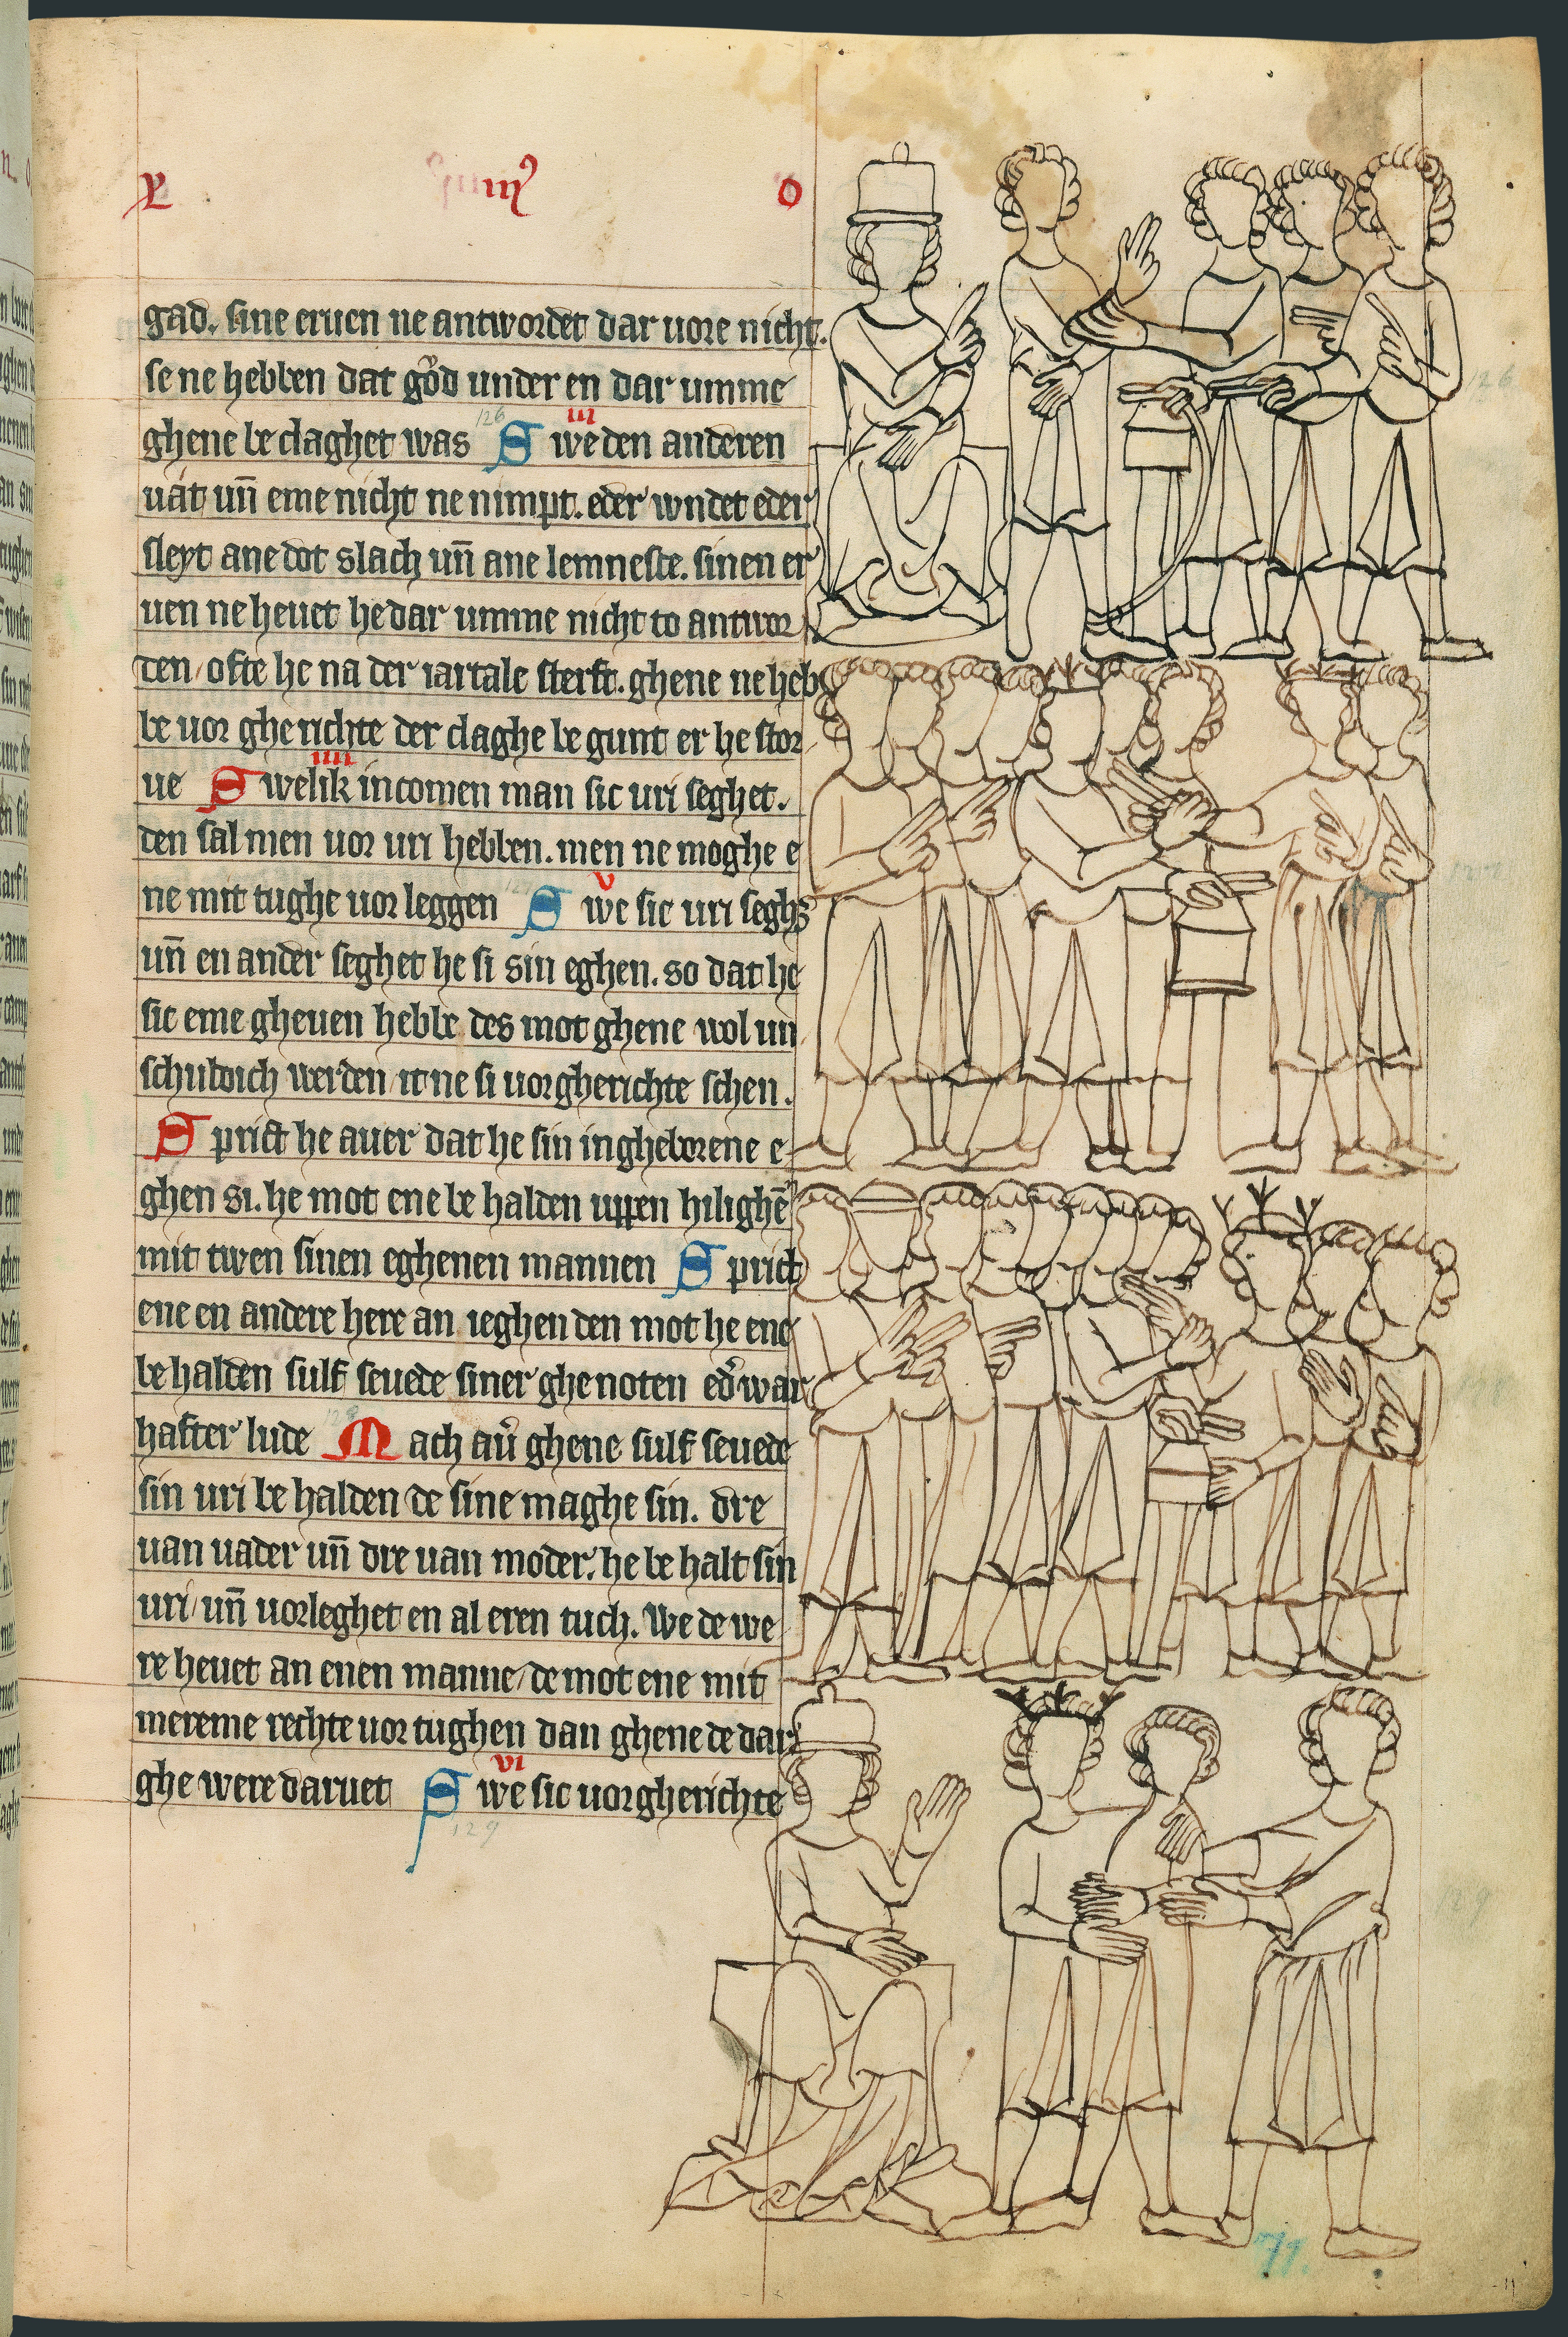 L primꝰ o
gad. sine eruen ne antwordet dar uore nicht.
se ne hebben dat gͦd under en dar umme
ghene be claghet was 126 S iii we den anderen
uat uñ eme nicht ne nimpt. eder wndet eder
sleyt ane dot slach uñ ane lemnesse. sinen er
uen ne heuet he dar umme nicht to antwor
den/ ofte he na der iartale sterft. ghene ne heb
be uor gherichte der claghe be gunt er he stor
ue S iiii welik incomen man sic uri seghet.
den sal men uor uri hebben. men ne moghe e
ne mit tughe uor leggen S v we sic uri seghꝫ
uñ en ander seghet he si sin eghen. so dat he
sic eme gheuen hebbe des mot ghene wol un
schuldich werden/ it ne si uor gherichte schen.
S prict he auer dat he sin ingheborene e
ghen si. he mot ene be halden uppen hilighē
mit twen sinen eghenen mannen S prict
ene en andere here an ieghen den mot he ene
be halden sulf seuede siner ghenoten edʾ war
hafter lude 128 M ach auʾ ghene sulf seuede
sin uri be halden de sine maghe sin. dre
uan uader uñ dre uan moder. he be halt sin
uri/ uñ uorleghet en al eren tuch. We de we
re heuet an enen manne/ de mot ene mit
mereme rechte uor tughen dan ghene de dar
ghe were daruet S vi we sic uor gherichte
129
126
127
129
71.